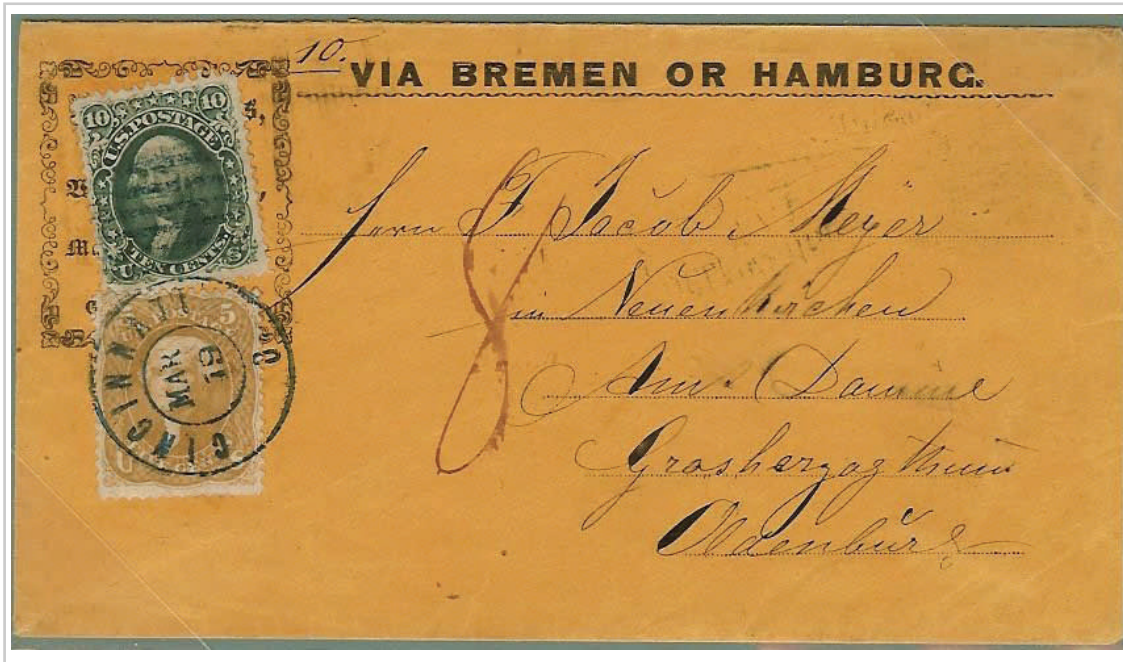 10.
VIA BREMEN OR HAMBURG.
10 10
U.S. POSTAGE
TEN CENTS
U
5
CINCINNATI O
MAR
19
8
Herrn F Jacob Meyer
in Neuenkirchen
Amt Damme
Grosherzogthum
Oldenburg